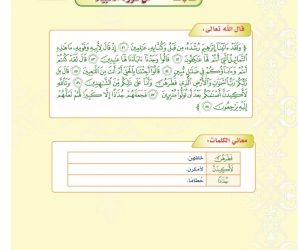 من سورة الأنبياء
قال الله تعالى:
﴿ وَلَقَدْ ءَاتَيْنَآ إِبْرَٰهِيمَ رُشْدَهُۥ مِن قَبْلُ وَكُنَّا بِهِۦ عَٰلِمِينَ ۝٥١ إِذْ قَالَ لِأَبِيهِ وَقَوْمِهِۦ مَا هَٰذِهِ
ٱلتَّمَاثِيلُ ٱلَّتِىٓ أَنتُمْ لَهَا عَٰكِفُونَ ۝٥٢ قَالُوا۟ وَجَدْنَآ ءَابَآءَنَا لَهَا عَٰبِدِينَ ۝٥٣ قَالَ لَقَدْ كُنتُمْ
أَنتُمْ وَءَابَآؤُكُمْ فِى ضَلَٰلٍ مُّبِينٍ ۝٥٤ قَالُوٓا۟ أَجِئْتَنَا بِٱلْحَقِّ أَمْ أَنتَ مِنَ ٱللَّٰعِبِينَ ۝٥٥ قَالَ بَل
رَّبُّكُمْ رَبُّ ٱلسَّمَٰوَٰتِ وَٱلْأَرْضِ ٱلَّذِى فَطَرَهُنَّ وَأَنَا۠ عَلَىٰ ذَٰلِكُم مِّنَ ٱلشَّٰهِدِينَ ۝٥٦ وَتَٱللَّهِ
لَأَكِيدَنَّ أَصْنَٰمَكُم بَعْدَ أَن تُوَلُّوا۟ مُدْبِرِينَ ۝٥٧ فَجَعَلَهُمْ جُذَٰذًا إِلَّا كَبِيرًا لَّهُمْ لَعَلَّهُمْ
إِلَيْهِ يَرْجِعُونَ ۝٥٨ ﴾
معاني الكلمات:
فَطَرَهُنَّ خلقهن.
لَأَكِيدَنَّ لأمكرن.
جُذَٰذًا حُطامًا.